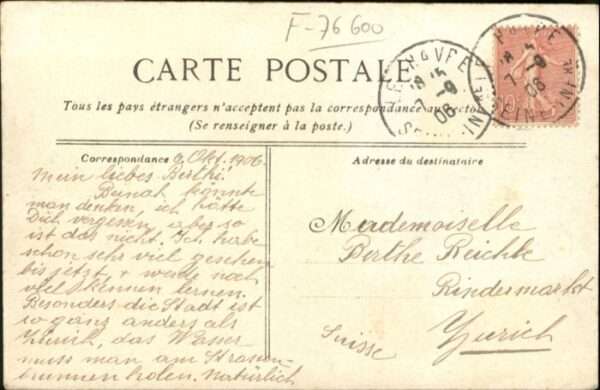 F-76600
HAVRE
18 15
7-9
06
SEINE
HAVRE
7-9
06
SEINE
CARTE POSTALE
Tous les pays étrangers n'acceptent pas la correspondance au recto
(Se renseigner à la poste.)
Correspondance
Adresse du destinataire
Okt. 1906
Mein liebes Berthi!
Beinah könnte
man denken, ich hätte
Dich vergessen, aber so
ist das nicht. Ich habe
schon sehr viel gesehen
bis jetzt & werde noch
viel kennen lernen.
Besonders die Stadt ist
so ganz anders als
Zürich, das Wasser
muss man am Strassen-
brunnen holen. Natürlich
Mademoiselle
Berthe Reichle
Rindermarkt
Zurich
Suisse